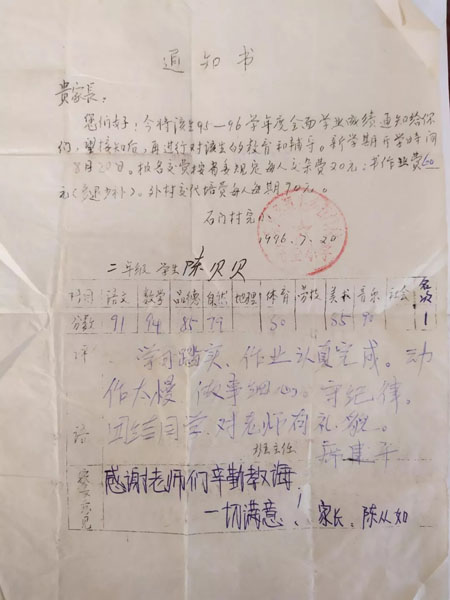 通知书
贵家长:
您们好!今将该生95—96学年度全面学业成绩通知给你
们,望接知后,再进行对该生的教育和辅导。新学期开学时间
8月20日。报名交费按省系规定每人交杂费70元;书作业费60
元(多退少补)。外村交代培费每人每期70元。
石门村完小
1996.7.20
二年级 学生 陈贝贝
科目 语文 数学 品德 自然 地理 体育 劳技 美术 音乐 社会 名次
分数 91 94 85 79 80 85 90 1
评 学习踏实、作业认真完成。动
作太慢 做事细心。守纪律。
语 团结同学、对老师有礼貌。
班主任
建平
家长意见 感谢老师们辛勤教诲
一切满意! 家长:陈从如